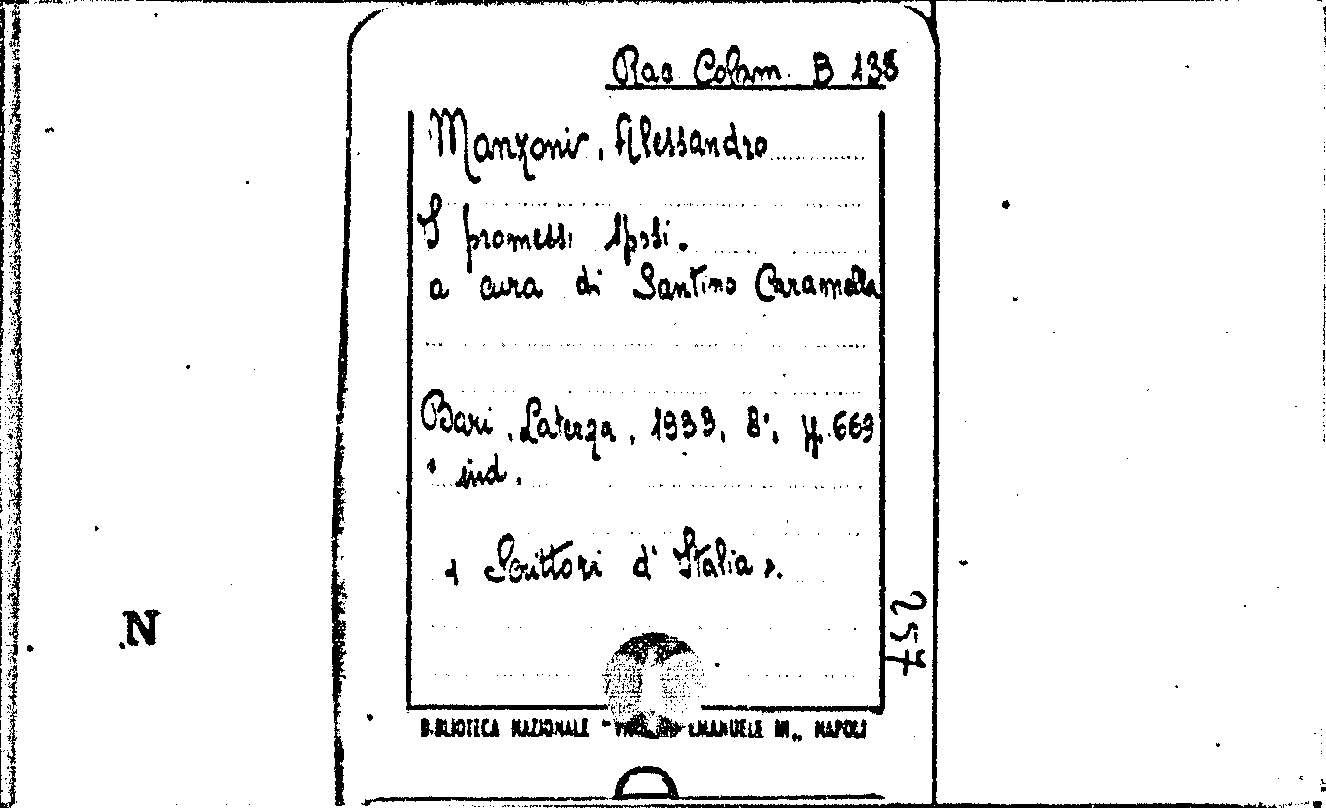 Rac. Colam. B 138
Manzoni, Alessandro
I promessi sposi.
a cura di Santino Caramella
Bari, Laterza, 1933, 8°, pp. 669
ind.
« Scrittori d'Italia ».
257
N
BIBLIOTECA NAZIONALE " EMANUELE III „ NAPOLI